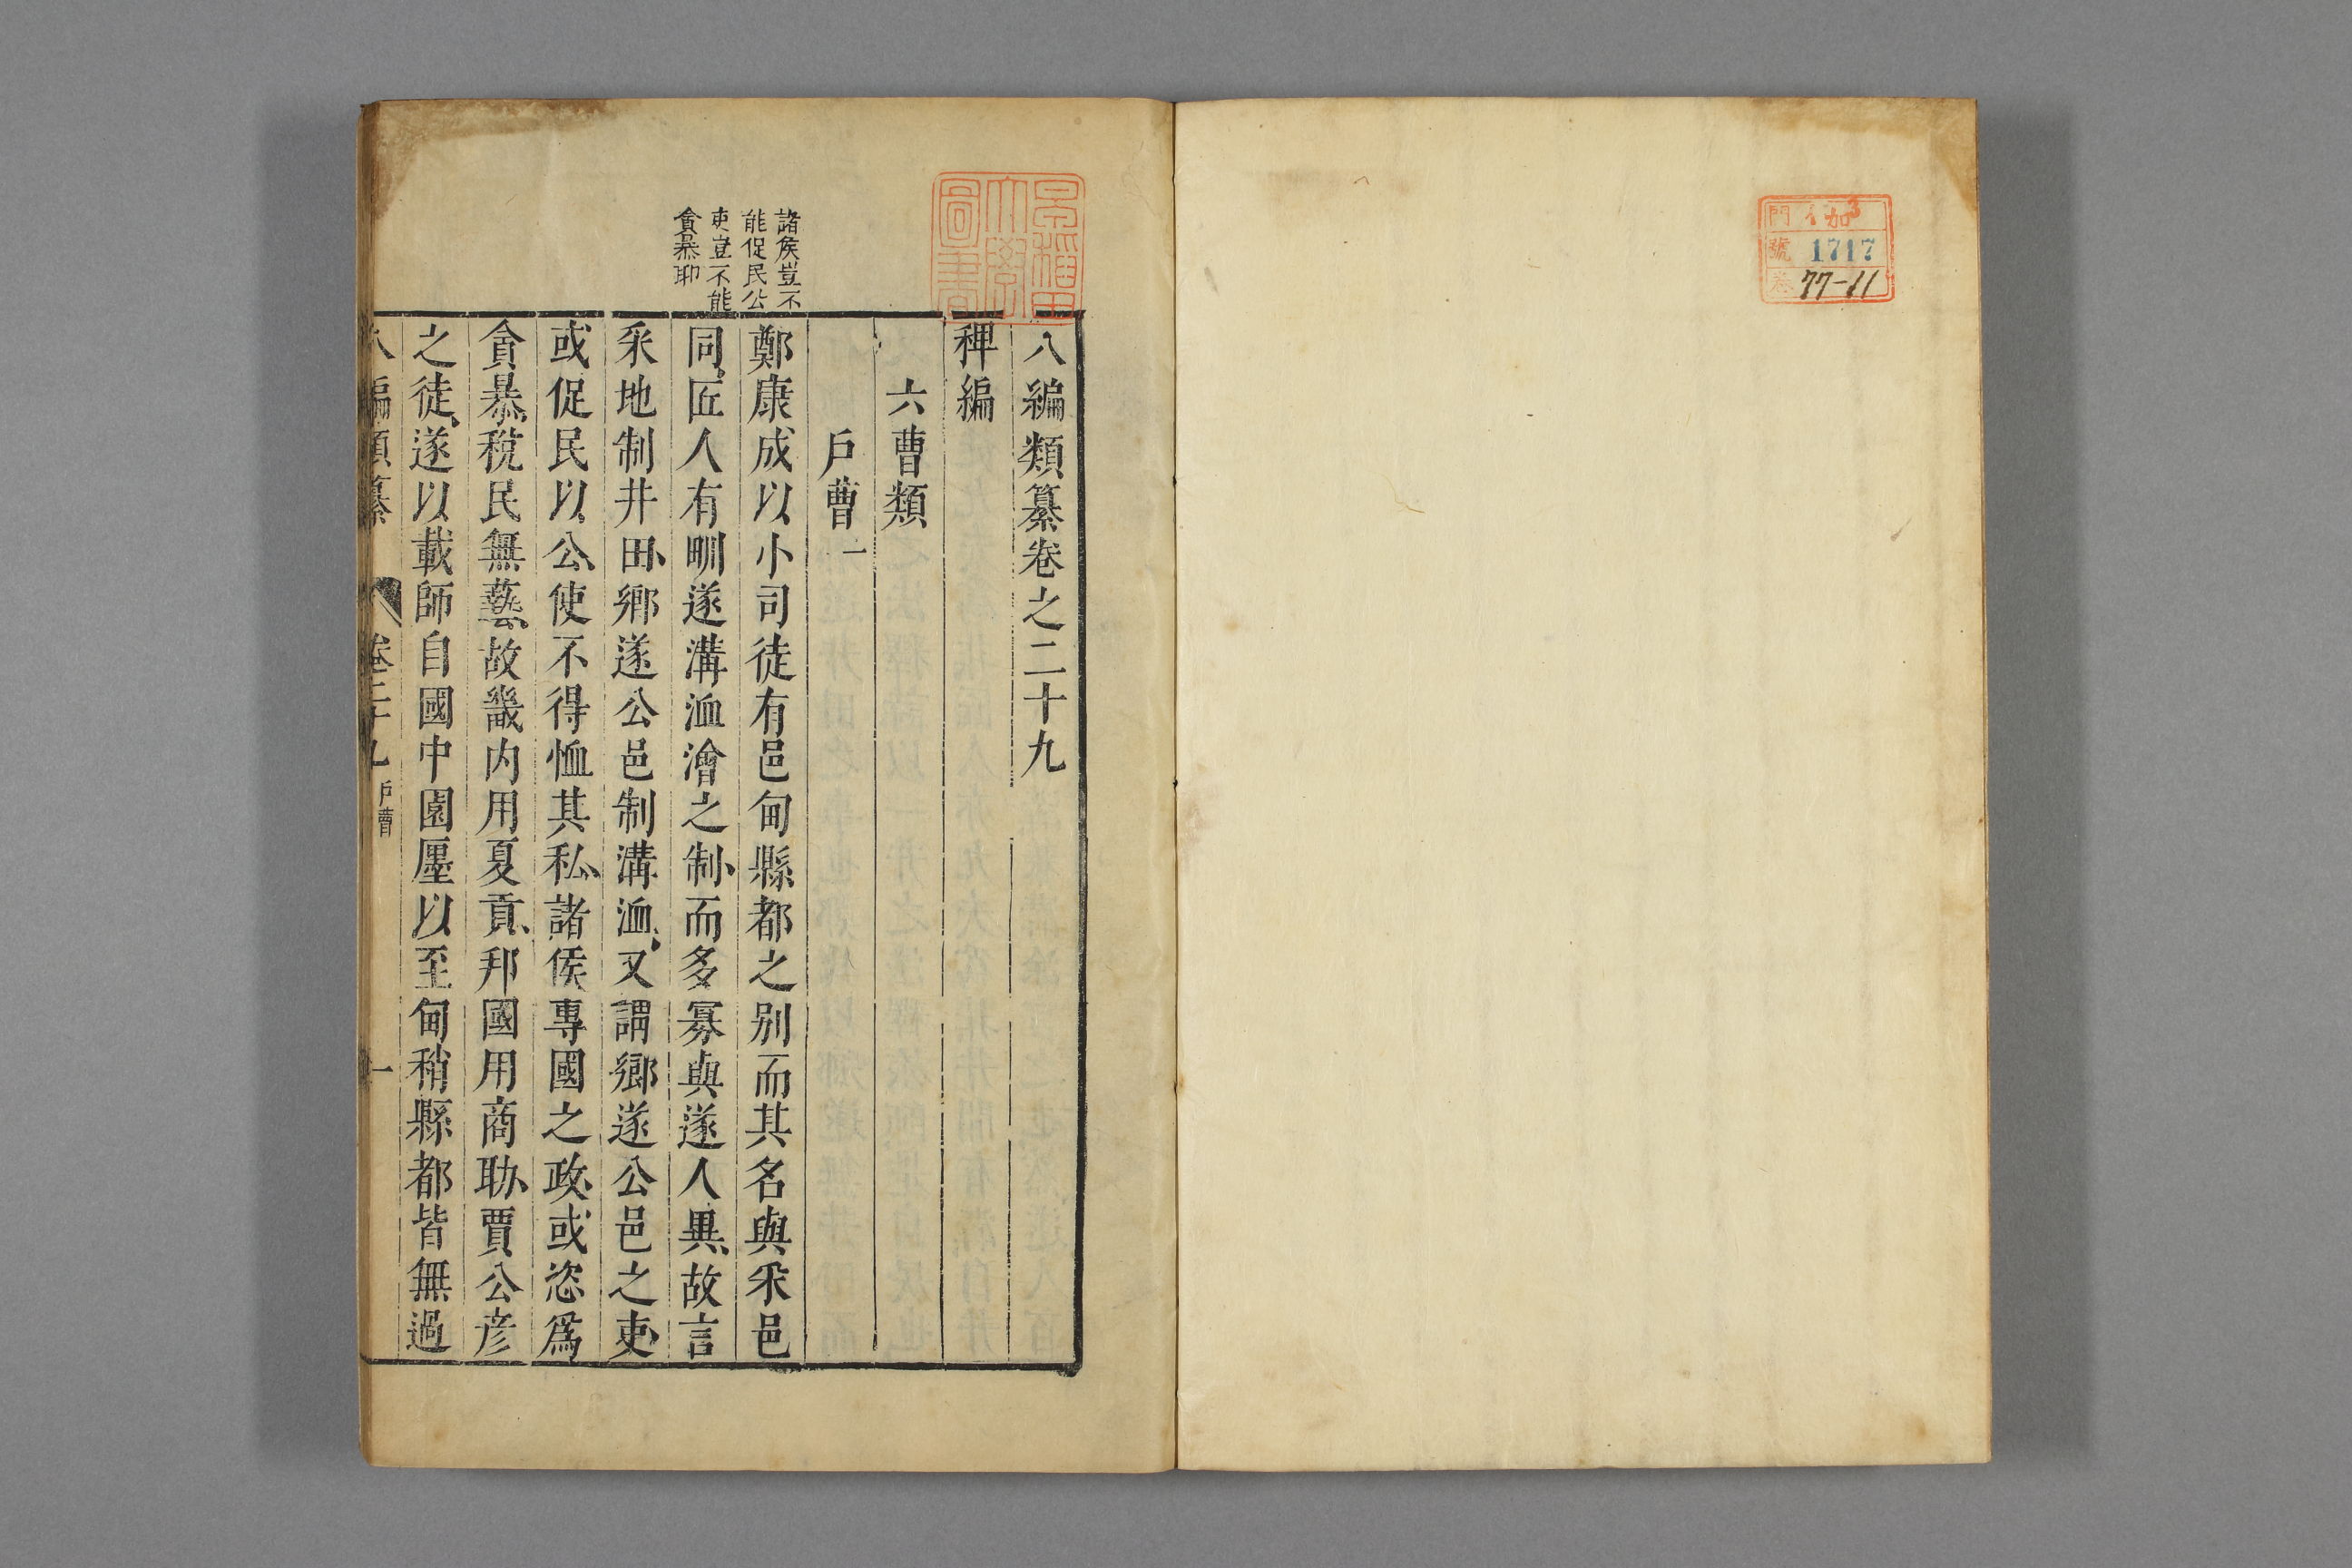 門 加3
號 1717
卷 77-11
早稲田
大學
圖書
諸侯豈不
能促民公
吏豈不能
貪暴耶
八編類纂卷之二十九
稗編
六曹類
戶曹一
鄭康成以小司徒有邑甸縣都之别而其名與采邑
同匠人有畎遂溝洫澮之制而多寡與遂人異故言
采地制井田鄉遂公邑制溝洫又謂鄉遂公邑之吏
或促民以公使不得恤其私諸侯專國之政或恣爲
貪暴稅民無藝故畿内用夏貢邦國用商助賈公彦
之徒遂以載師自國中園廛以至甸稍縣都皆無過
八編類纂 卷二十九 戶曹 一